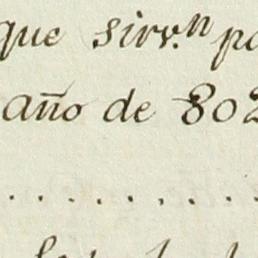 que sirv.n
año de 802
..........